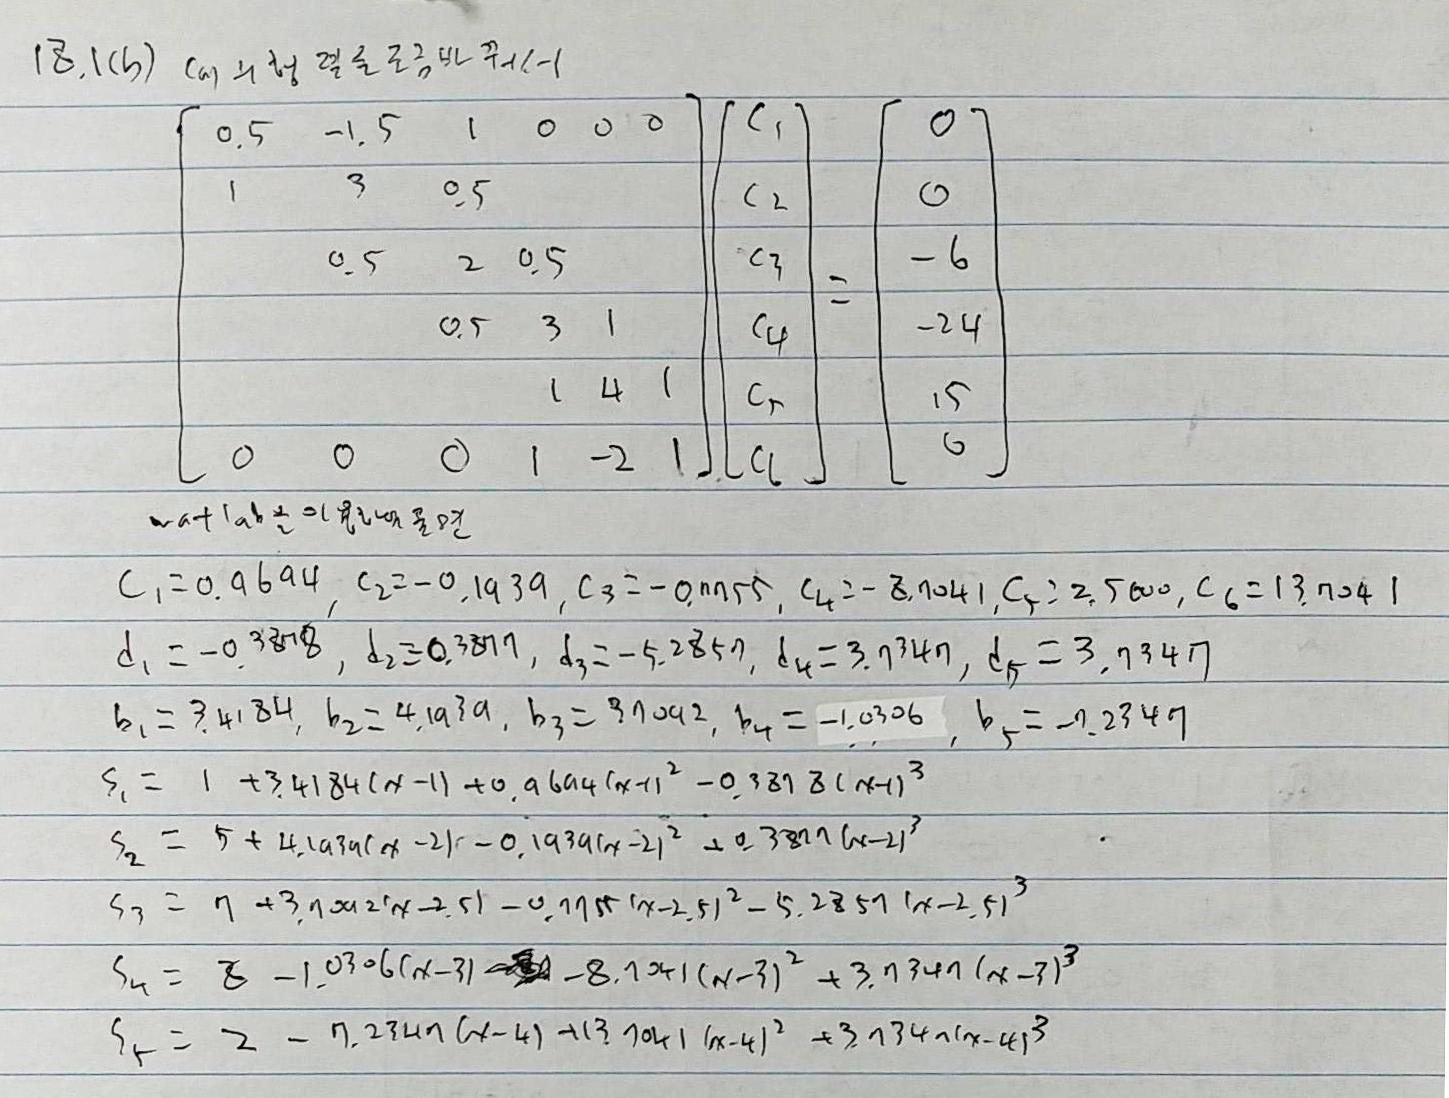 18.1(b) (a)의 행렬을 조금 바꾸면
0.5 -1.5 1 0 0 0 C1 0
1 3 0.5 C2 0
0.5 2 0.5 C3 = -6
0.5 3 1 C4 -24
1 4 1 C5 15
0 0 0 1 -2 1 C6 0
matlab을 이용해서 풀면
C1=0.9694, C2=-0.1939, C3=-0.7755, C4=-8.7041, C5=2.5000, C6=13.7041
d1=-0.3878, d2=0.3877, d3=-5.2857, d4=3.7347, d5=3.7347
b1=3.4184, b2=4.1939, b3=3.7092, b4=-1.0306, b5=-7.2347
S1 = 1 +3.4184(x-1) +0.9694(x-1)² -0.3878(x-1)³
S2 = 5 + 4.1939(x-2) -0.1939(x-2)² +0.3877(x-2)³
S3 = 7 +3.7092(x-2.5) -0.7755(x-2.5)² -5.2857(x-2.5)³
S4 = 8 -1.0306(x-3) -8.7041(x-3)² +3.7347(x-3)³
S5 = 2 - 7.2347(x-4) +13.7041(x-4)² +3.7347(x-4)³